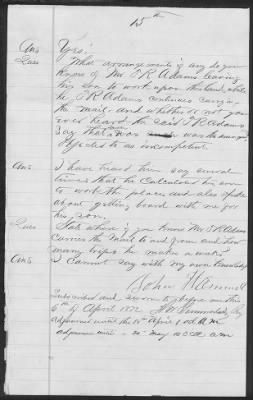 15th
Ans Yes!
Ques What arrangements if any do you
know of Mr T R Adams leaving
his son to work upon the land, while
he T R Adams continues carrying
the mail and whether or not you
ever heard the said T R Adams
say that was the
objected to as incompetent.
Ans I have heard him say several
times that he calculated his son
to work the place and also spoke
about getting board with me for
his son.
Ques State where if you know Mr T R Adams
carries the mail to and from and how
many trips he makes a week?
Ans I cannot say with my own knowledge
John
Subscribed and sworn to before me this
6th of April 1872
Adjourned until the 10th April 10 A.M
Adjourned until May 10 a.m